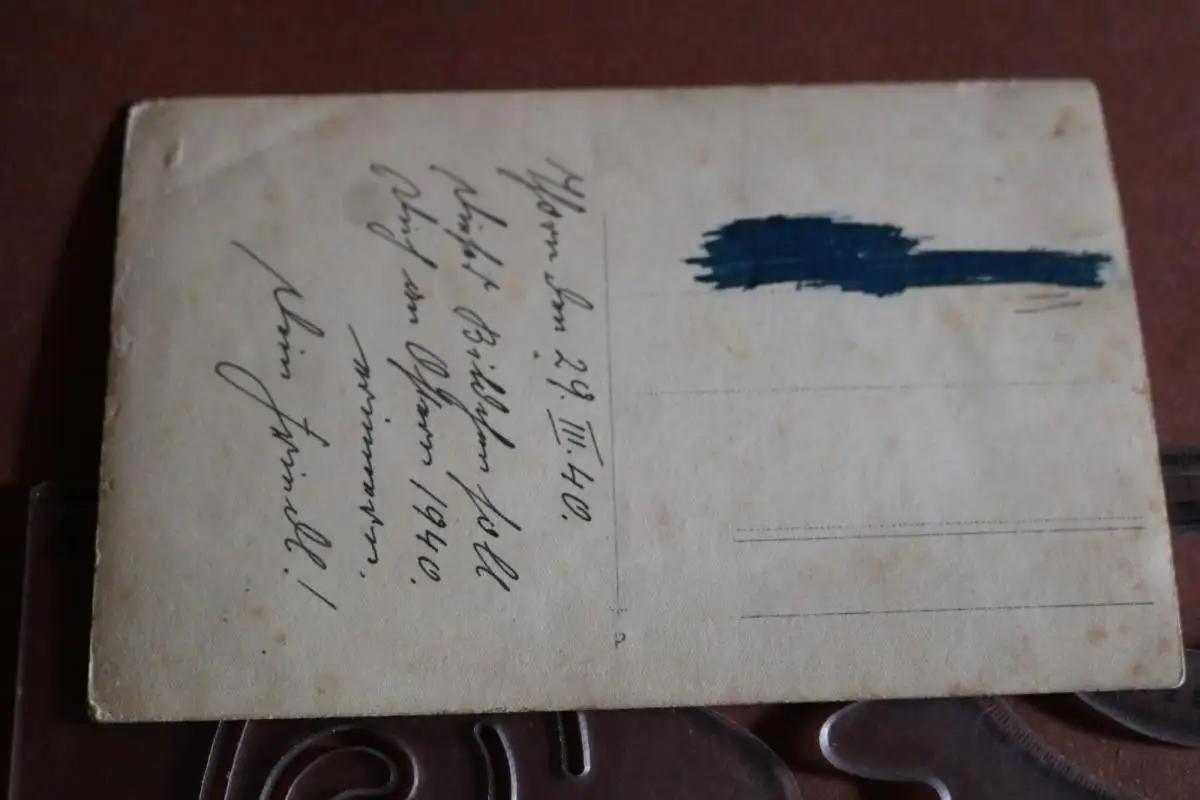 Thorn den 29. III. 40.
Dieses Bildchen soll
Dich an Ostern 1940.
erinnern.
Dein Friedel!